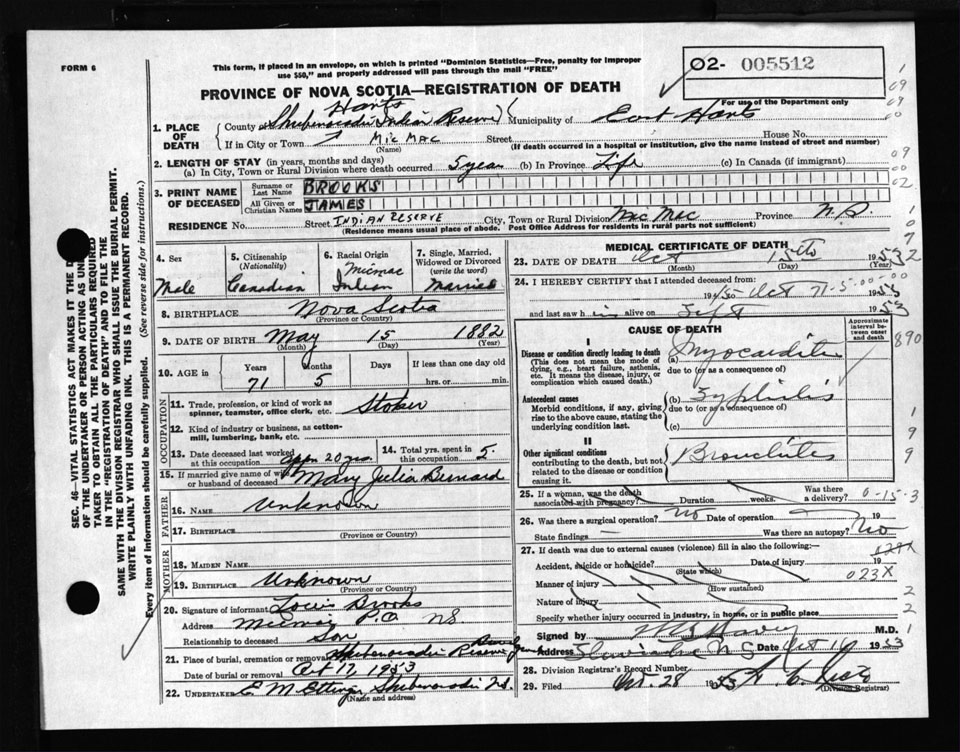 FORM 6
This form, if placed in an envelope, on which is printed "Dominion Statistics—Free, penalty for improper
use $50," and properly addressed will pass through the mail "FREE"
PROVINCE OF NOVA SCOTIA—REGISTRATION OF DEATH
02- 005512
For use of the Department only
1. PLACE OF DEATH
Hants
County Shubenacadie Indian Reserve Municipality of East Hants
If in City or Town Mic Mac Street House No.
(Name) (If death occurred in a hospital or institution, give the name instead of street and number)
2. LENGTH OF STAY (in years, months and days)
(a) In City, Town or Rural Division where death occurred 5 years (b) In Province Life (c) In Canada (if immigrant)
3. PRINT NAME OF DECEASED
Surname or Last Name BROOKS
All Given or Christian Names JAMES
RESIDENCE No. Street INDIAN RESERVE City, Town or Rural Division Mic Mac Province N.S.
(Residence means usual place of abode. Post Office Address for residents in rural parts not sufficient)
4. Sex
Male
5. Citizenship (Nationality)
Canadian
6. Racial Origin
Micmac
Indian
7. Single, Married, Widowed or Divorced (write the word)
Married
8. BIRTHPLACE Nova Scotia
(Province or Country)
9. DATE OF BIRTH May 15 1882
(Month) (Day) (Year)
10. AGE in Years Months Days If less than one day
71 5 hrs. or min.
OCCUPATION
11. Trade, profession, or kind of work as spinner, teamster, office clerk, etc. Stoker
12. Kind of industry or business, as cotton-mill, lumbering, bank, etc.
13. Date deceased last worked at this occupation 20 yrs.
14. Total yrs. spent in this occupation 5.
15. If married give name of wife or husband of deceased Mary Julia Bernard
FATHER
16. NAME Unknown
17. BIRTHPLACE
(Province or Country)
MOTHER
18. MAIDEN NAME
19. BIRTHPLACE Unknown
(Province or Country)
20. Signature of informant Louis Brooks
Address Micmac P.O N.S
Relationship to deceased Son
21. Place of burial, cremation or removal Shubenacadie Reserve
Date of burial or removal Oct 17, 1953
22. UNDERTAKER E M Ettinger Shubenacadie N.S.
(Name and address)
MEDICAL CERTIFICATE OF DEATH
23. DATE OF DEATH Oct 15th 1953
(Month) (Day) (Year)
24. I HEREBY CERTIFY that I attended deceased from:
and last saw h im alive on Sept 1953
CAUSE OF DEATH
Approximate interval between onset and death
I
Disease or condition directly leading to death (a) Myocarditis
(This does not mean the mode of dying, e.g., heart failure, asthenia, etc. It means the disease, injury, or complication which caused death.)
due to (or as a consequence of)
Antecedent causes (b) Syphilis
Morbid conditions, if any, giving rise to the above cause, stating the underlying condition last.
due to (or as a consequence of)
(c)
II
Other significant conditions Bronchitis
contributing to the death, but not related to the disease or condition causing it.
25. If a woman, was the death associated with pregnancy? Duration weeks. Was there a delivery? 0-15-3
26. Was there a surgical operation? No Date of operation 19
State findings Was there an autopsy? No
27. If death was due to external causes (violence) fill in also the following:—
Accident, suicide or homicide? Date of injury 19
(State which)
Manner of injury 023X
(How sustained)
Nature of injury
Specify whether injury occurred in industry, in home, or in public place
Signed by M.D.
Address N S Date Oct 16 1953
28. Division Registrar's Record Number
29. Filed Oct. 28 1953
(Division Registrar)
SEC. 46—VITAL STATISTICS ACT MAKES IT THE
OF THE UNDERTAKER OR PERSON ACTING AS
TAKER TO OBTAIN ALL THE PARTICULARS REQUIRED
IN THE "REGISTRATION OF DEATH" AND TO FILE THE
SAME WITH THE DIVISION REGISTRAR WHO SHALL ISSUE THE BURIAL PERMIT.
WRITE PLAINLY WITH UNFADING INK. THIS IS A PERMANENT RECORD.
Every item of information should be carefully supplied. (See reverse side for instructions.)